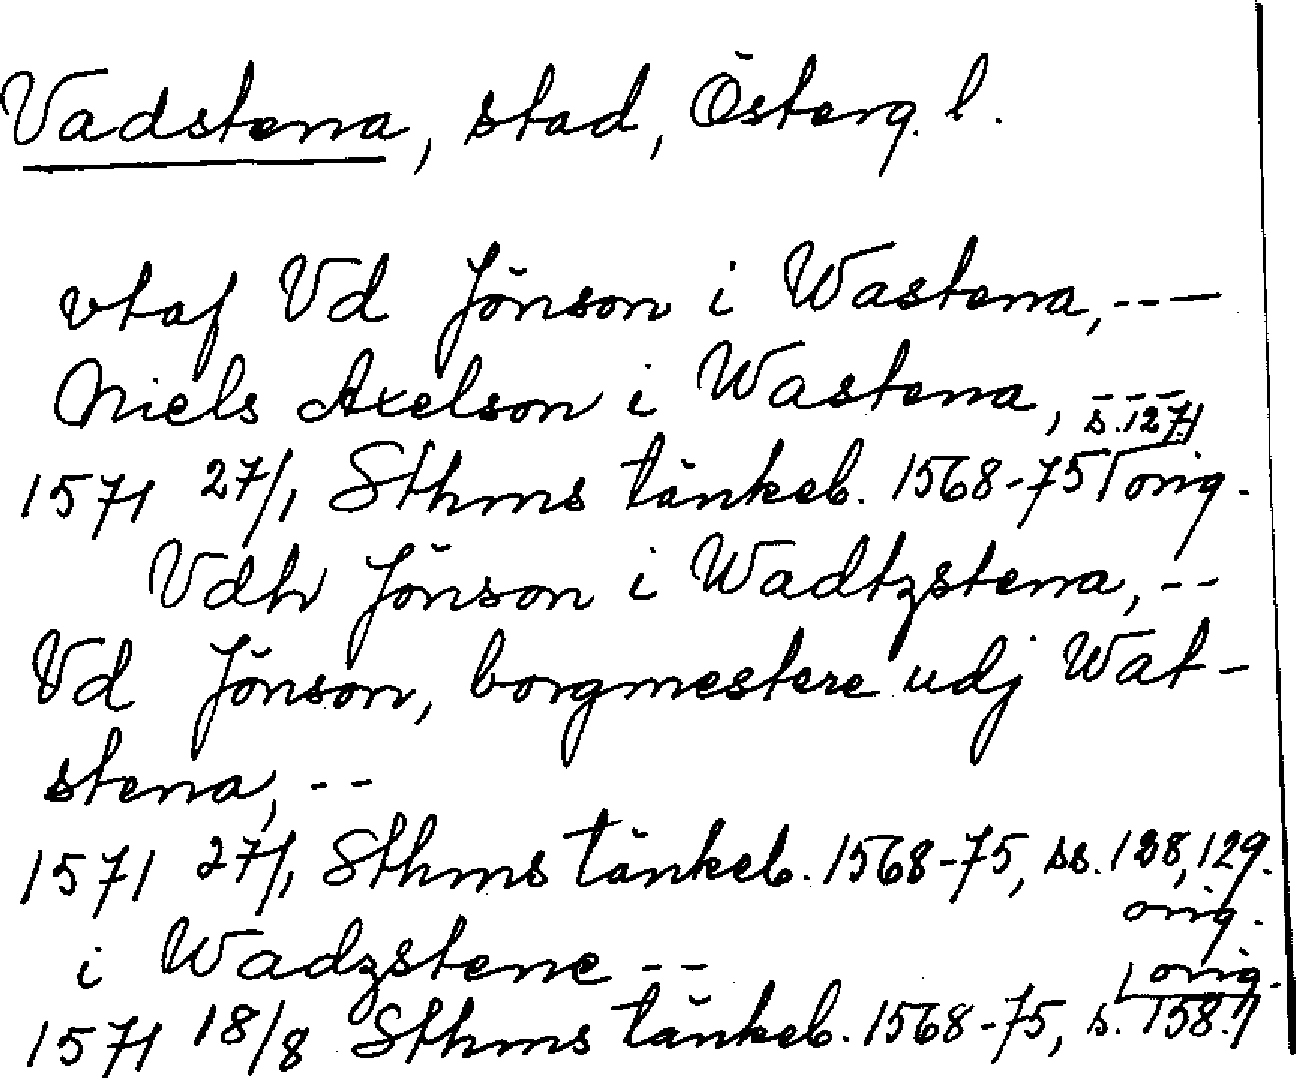 Vadstena, stad, Österg. l.
vtaf Vd Jönson i Wastena, ---
Niels Axelson i Wastena, ---
s. 127.
1571 27/1 Sthms tänkeb. 1568-75 orig.
Vdh Jönson i Wadtzstena, --
Vd Jönson, borgmestere udj Wat-
stena, --
1571 27/1, Sthms tänkeb. 1568-75, ss. 128, 129.
orig.
i Wadzstene --
orig.
1571 18/8 Sthms tänkeb. 1568-75, s. 158.